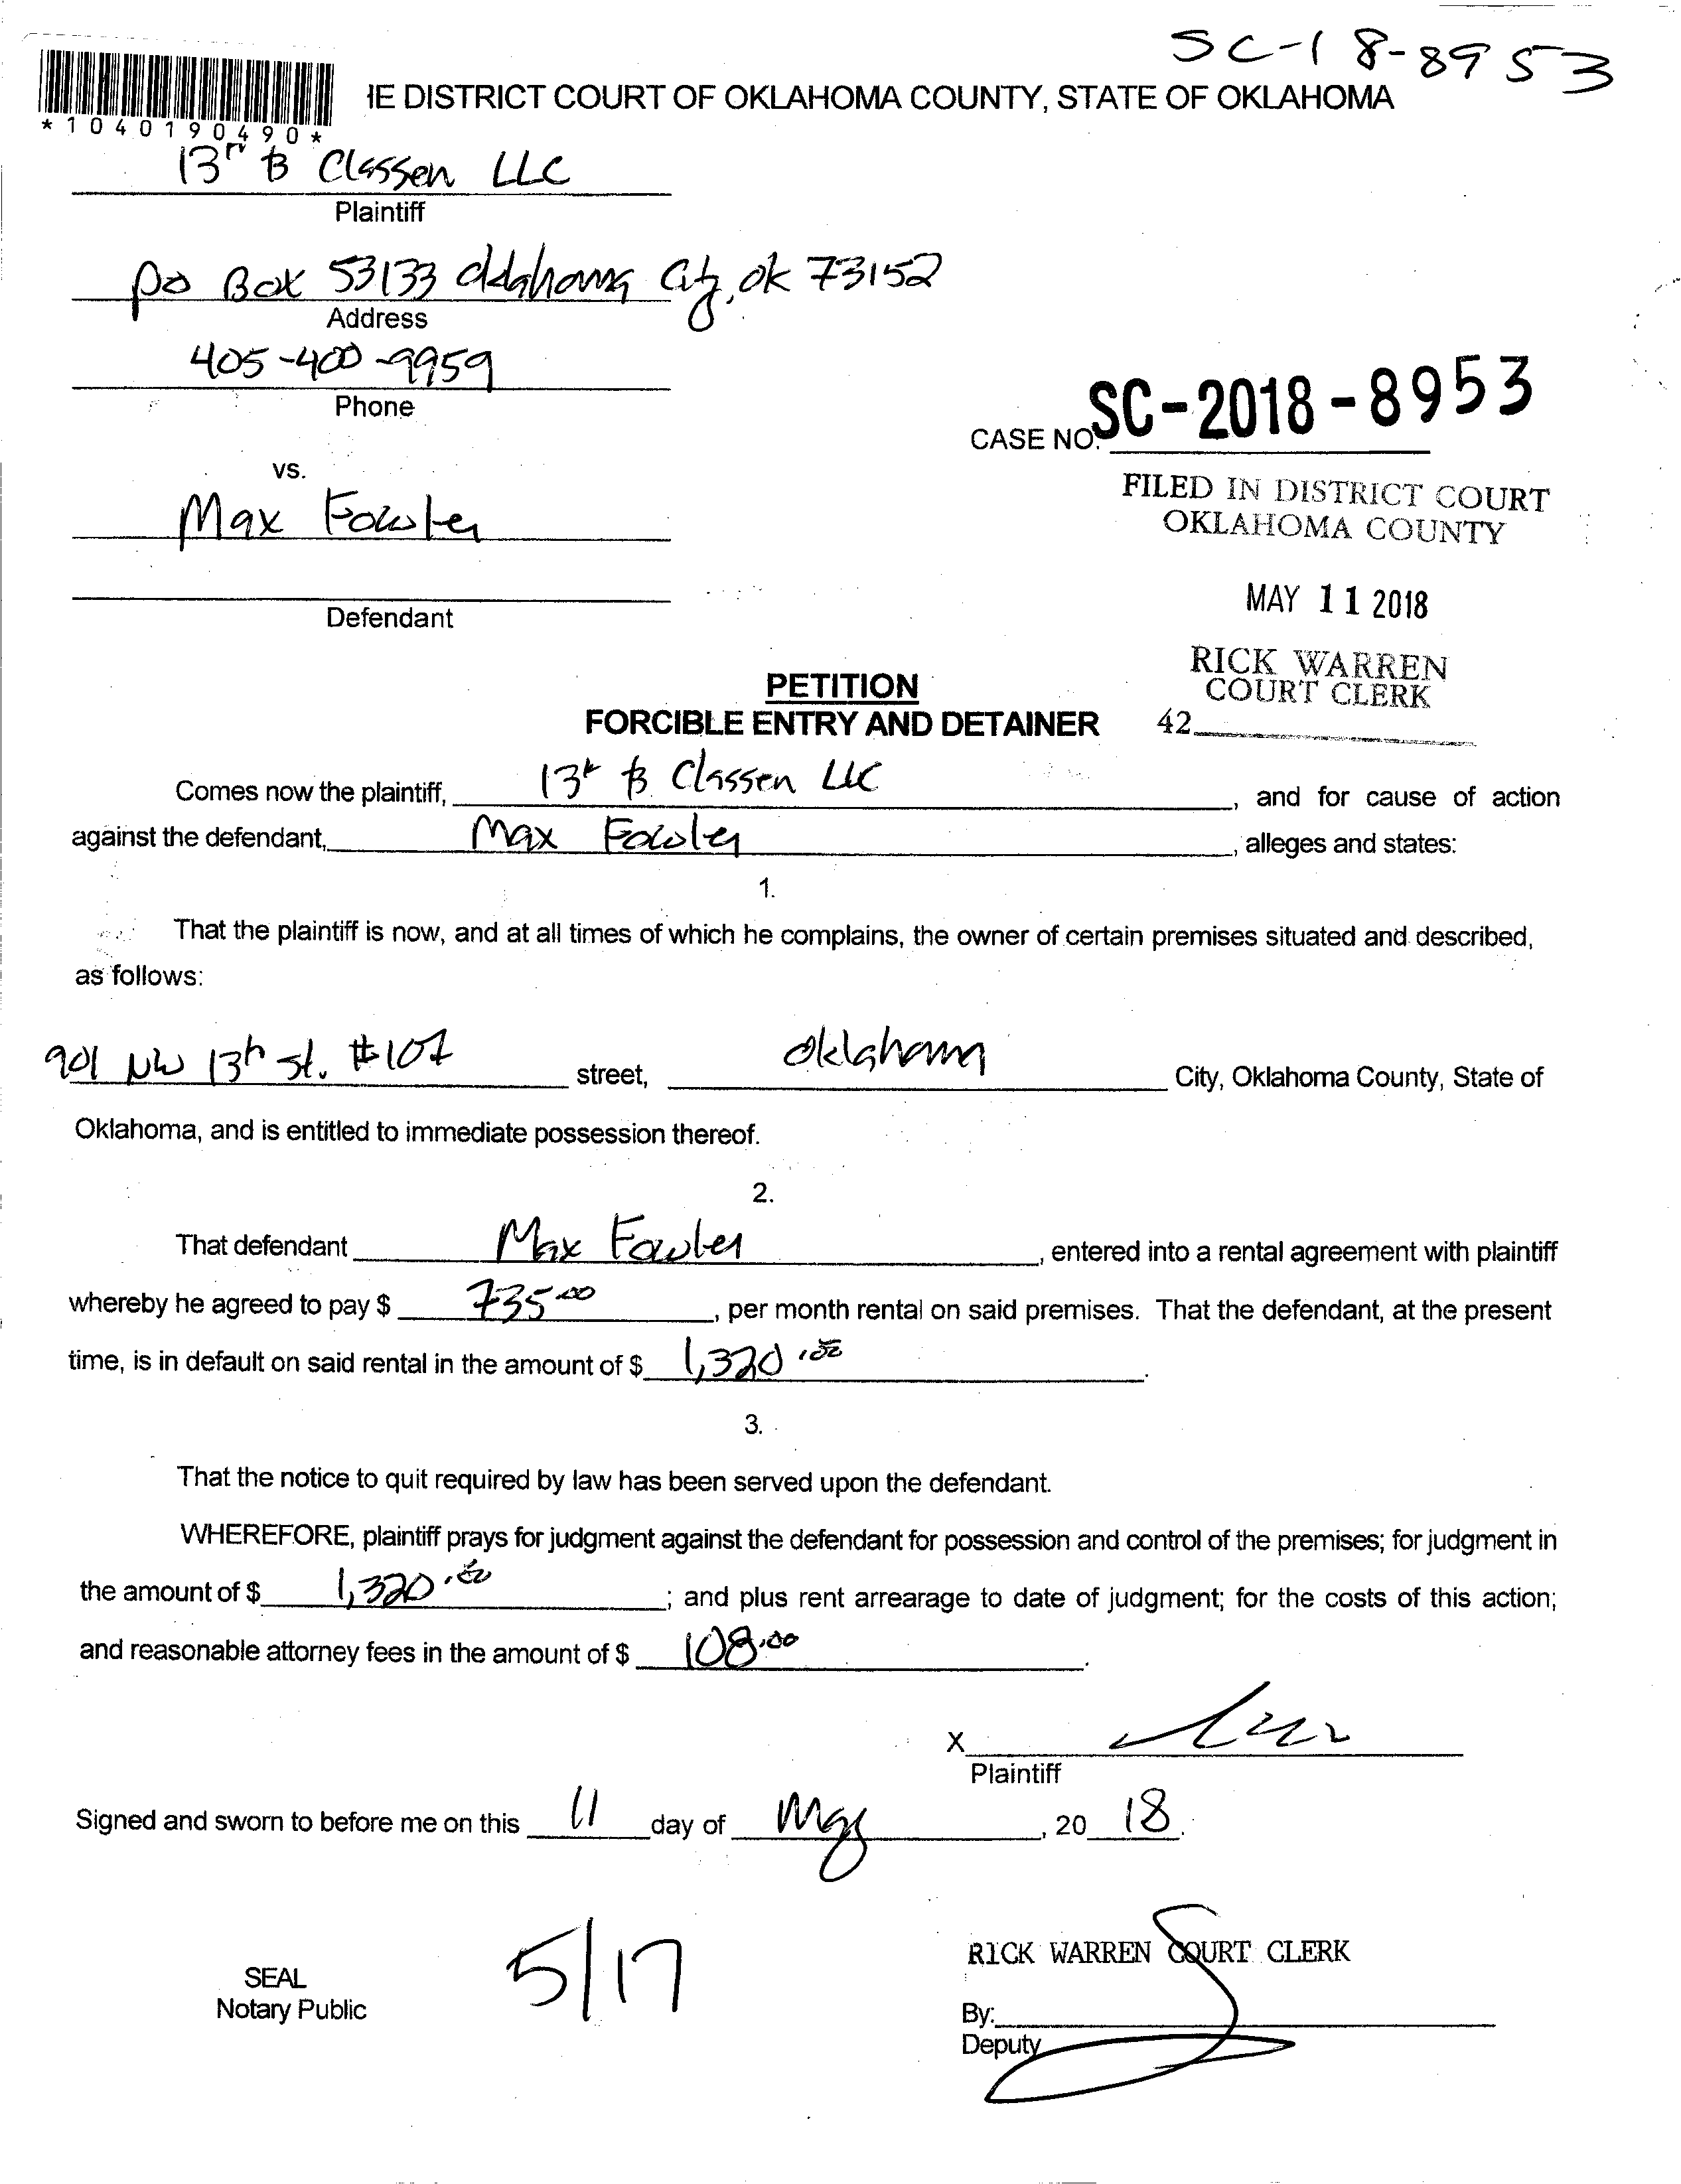 SC-18-8953
IE DISTRICT COURT OF OKLAHOMA COUNTY, STATE OF OKLAHOMA
*1040190490*
13th & Classen LLC
Plaintiff
PO Box 53133 Oklahoma City, OK 73152
Address
405-400-9959
Phone
CASE NO. SC-2018-8953
vs.
FILED IN DISTRICT COURT
OKLAHOMA COUNTY
Max Fowler
MAY 11 2018
Defendant
RICK WARREN
COURT CLERK
42
PETITION
FORCIBLE ENTRY AND DETAINER
Comes now the plaintiff, 13th & Classen LLC, and for cause of action
against the defendant, Max Fowler, alleges and states:
1.
That the plaintiff is now, and at all times of which he complains, the owner of certain premises situated and described,
as follows:
901 NW 13th St. #107 street, Oklahoma City, Oklahoma County, State of
Oklahoma, and is entitled to immediate possession thereof.
2.
That defendant Max Fowler, entered into a rental agreement with plaintiff
whereby he agreed to pay $ 735.00, per month rental on said premises. That the defendant, at the present
time, is in default on said rental in the amount of $ 1,320.00.
3.
That the notice to quit required by law has been served upon the defendant.
WHEREFORE, plaintiff prays for judgment against the defendant for possession and control of the premises; for judgment in
the amount of $ 1,320.00; and plus rent arrearage to date of judgment; for the costs of this action;
and reasonable attorney fees in the amount of $ 108.00.
X
Plaintiff
Signed and sworn to before me on this 11 day of May, 20 18.
5/17
RICK WARREN COURT CLERK
SEAL
Notary Public
By:
Deputy